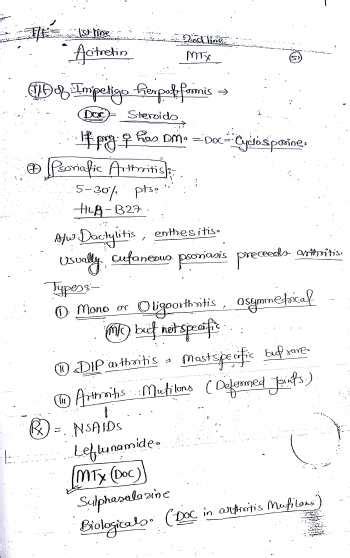 T/t = 1st line 2nd line
Acitretin MTx 51
T/t of Impetigo Herpetiformis →
Doc = Steroids
If preg ♀ has DM. = Doc = Cyclosporine.
* Psoriatic Arthritis :-
5-30% pts.
HLA-B27
A/w Dactylitis, enthesitis.
Usually, cutaneous psoriasis preceeds arthritis.
Types:-
(i) Mono or Oligoarthritis, asymmetrical
(M/C) but not specific
(ii) DIP arthritis = Most specific but rare
(iii) Arthritis Mutilans (Deformed Joints)
Rx = NSAIDS
Leflunamide.
MTx (Doc)
Sulphasalazine
Biologicals. (DOC in arthritis Mutilans)